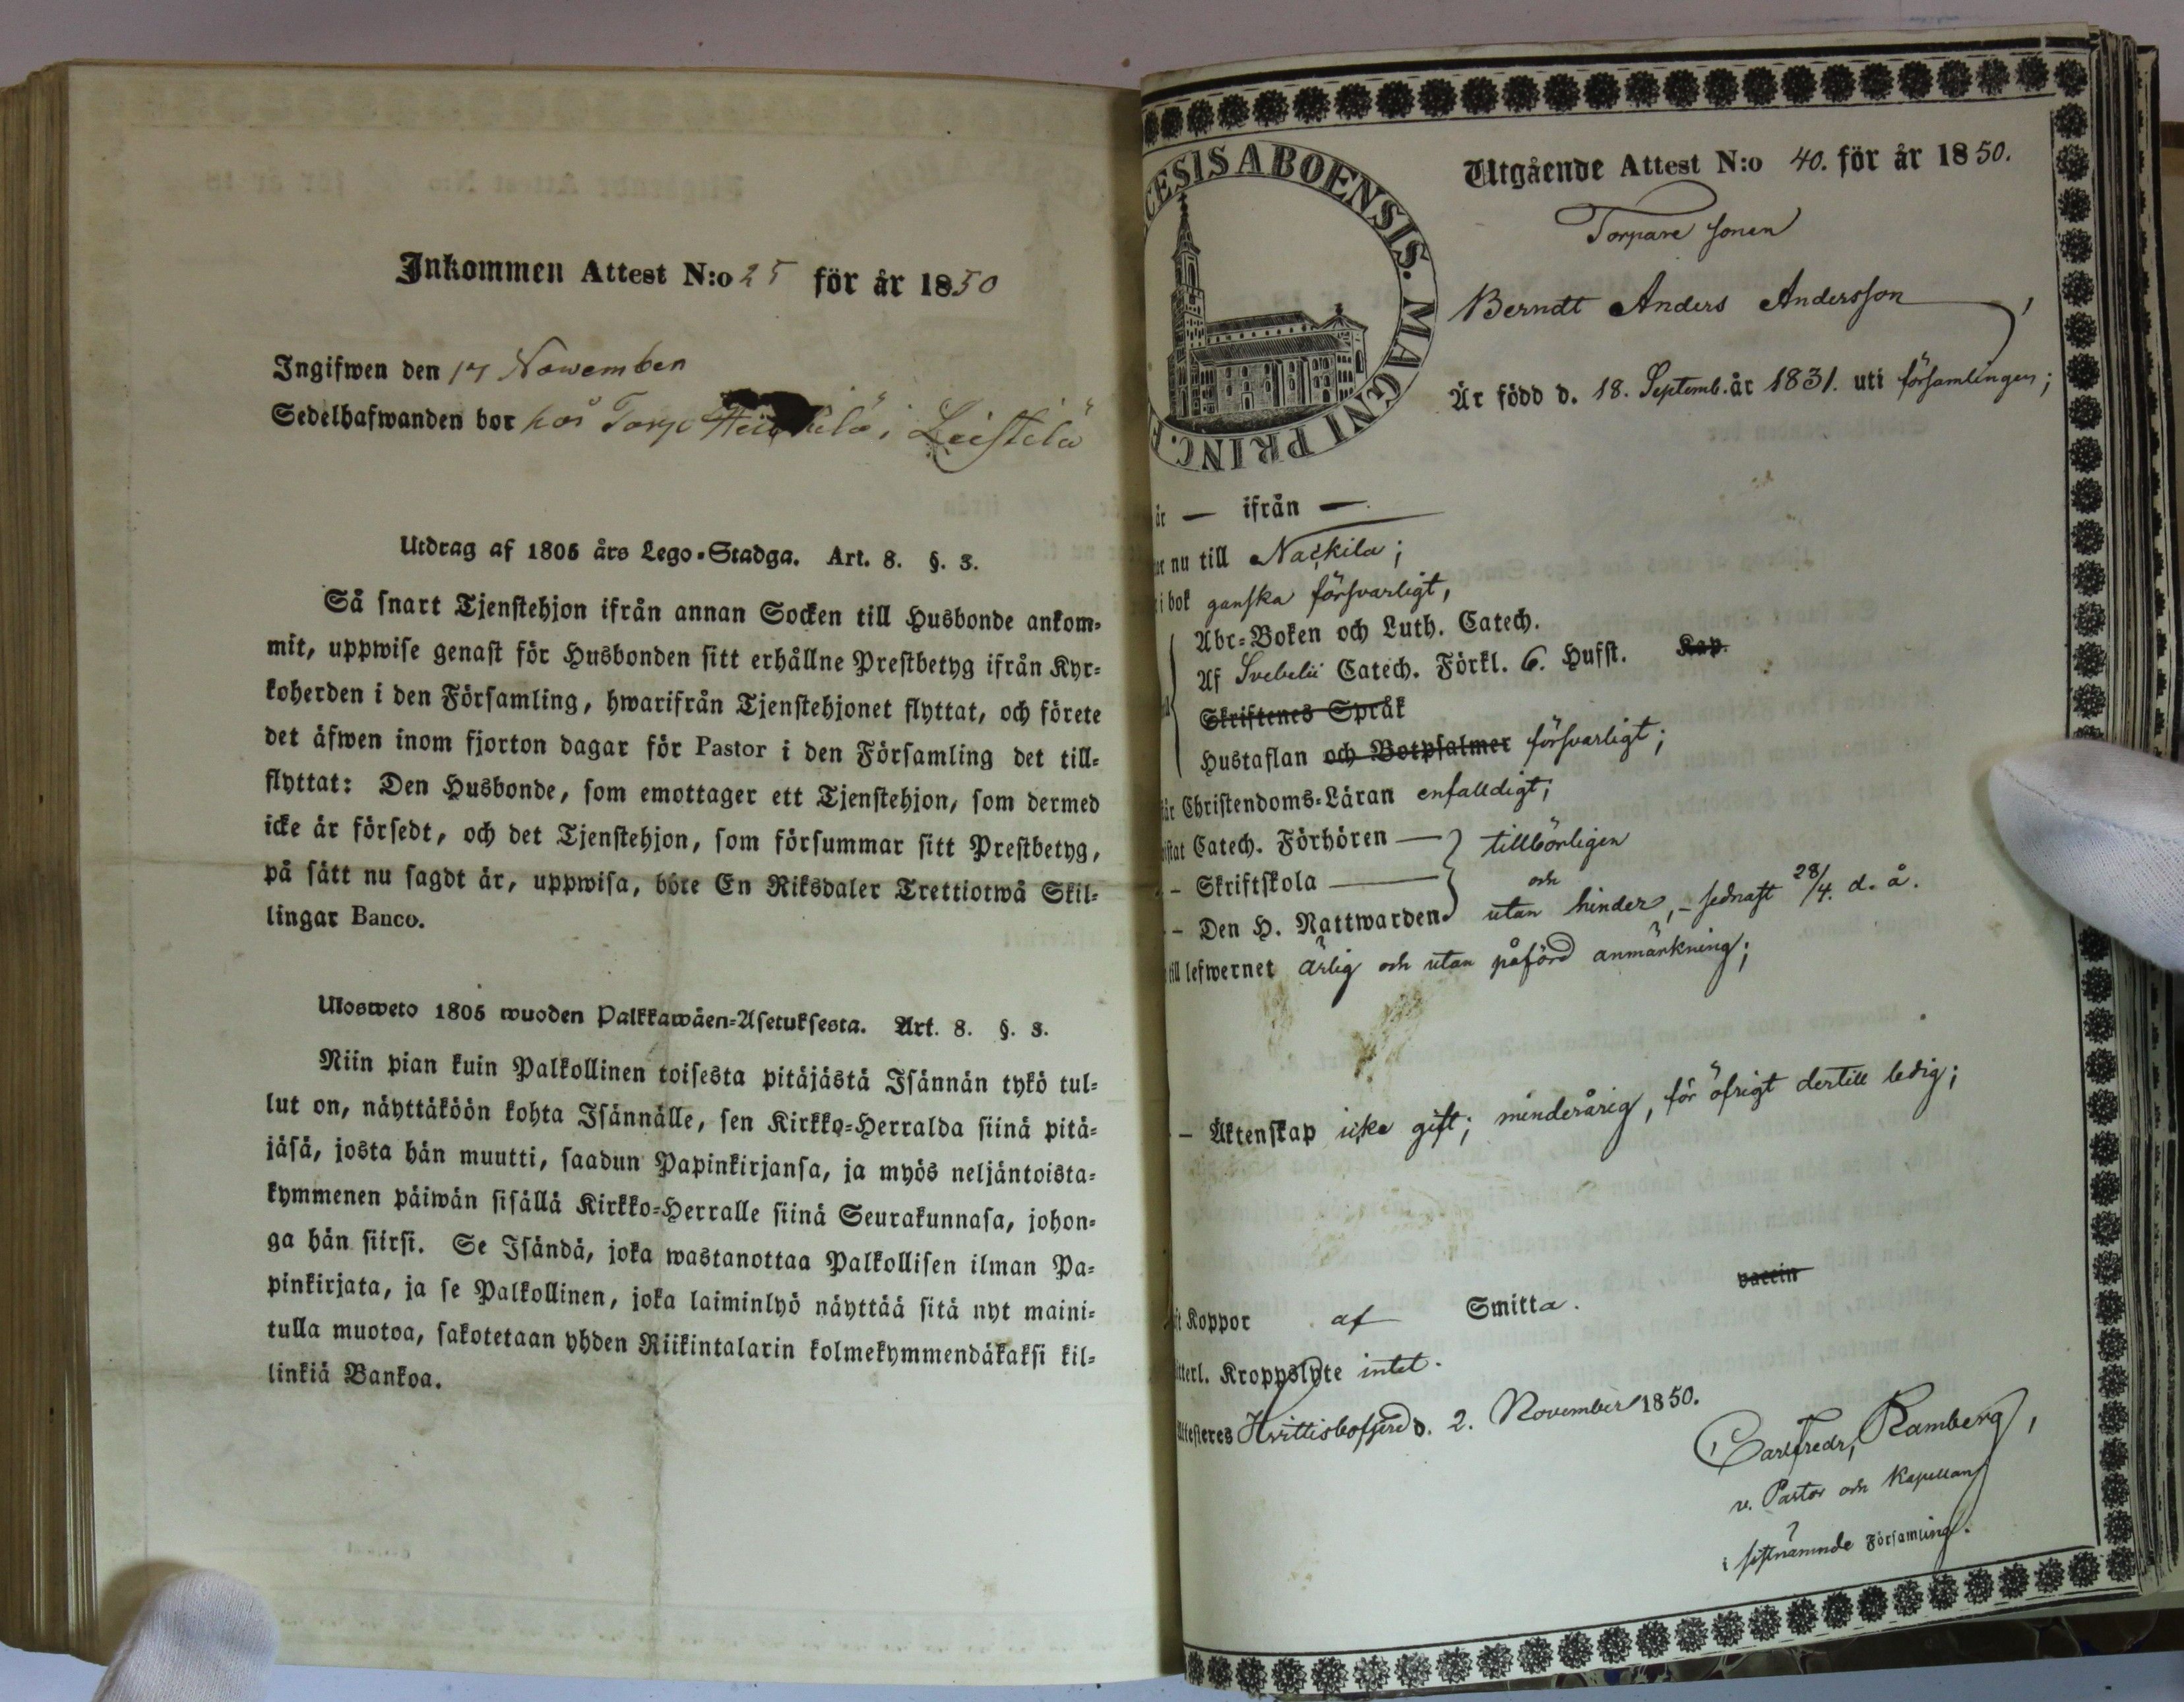 Inkommen Attest N:o 25 för år 1850
Ingifwen den 17 November
Sedelhafwanden bor hos Torp i Leistilä
Utdrag af 1805 års Lego-Stadga. Art. 8. §. 3.
Så snart Tjenstehjon ifrån annan Socken till Husbonde ankom-
mit, uppwise genast för Husbonden sitt erhållne Prestbetyg ifrån Kyr-
koherden i den Församling, hwarifrån Tjenstehjonet flyttat, och förete
det äfwen inom fjorton dagar för Pastor i den Församling det till-
flyttat: Den Husbonde, som emottager ett Tjenstehjon, som dermed
icke är försedt, och det Tjenstehjon, som försummar sitt Prestbetyg,
på sätt nu sagdt är, uppwisa, böte En Riksdaler Trettiotwå Skil-
lingar Banco.
Ulosweto 1805 wuoden Palkkawäen-Asetuksesta. Art. 8. §. 3.
Niin pian kuin Palkollinen toisesta pitäjästä Isännän tykö tul-
lut on, näyttäköön kohta Isännälle, sen Kirkko-Herralda siinä pitä-
jäsä, josta hän muutti, saadun Papinkirjansa, ja myös neljäntoista-
kymmenen päiwän sisällä Kirkko-Herralle siinä Seurakunnasa, johon-
ga hän siirsi. Se Isändä, joka wastanottaa Palkollisen ilman Pa-
pinkirjata, ja se Palkollinen, joka laiminlyö näyttää sitä nyt maini-
tulla muotoa, sakotetaan yhden Riikintalarin kolmekymmendäkaksi kil-
linkiä Bankoa.
CESIS ABOENSIS. MAGNI PRINC. F
Utgående Attest N:o 40. för år 1850.
Torpare sonen
Berndt Anders Andersson,
Är född d. 18. Septemb. år 1831. uti församlingen;
år — ifrån —.
nu till Nackila;
i bok ganska försvarligt,
Abc-Boken och Luth. Catech.
Af Svebelii Catech. Förkl. 6. Hufst. Kap.
Skriftenes Språk
Hustaflan och Botpsalmer försvarligt;
Christendoms-Läran enfalldigt;
istat Catech. Förhören — tillbörligen
- Skriftskola — och
- Den H. Nattwarden utan hinder, - sednast 28/4. d. å.
till lefwernet ärlig och utan påförd anmärkning;
- Äktenskap icke gift; minderårig, för öfrigt dertill ledig;
Koppor af Smitta. vaccin
tterl. Kroppslyte intet.
Attesteres Hvittisbofjerd d. 2. November 1850.
Carl Fredr. Ramberg,
v. Pastor och Kapellan
i sistnämnde Församling.